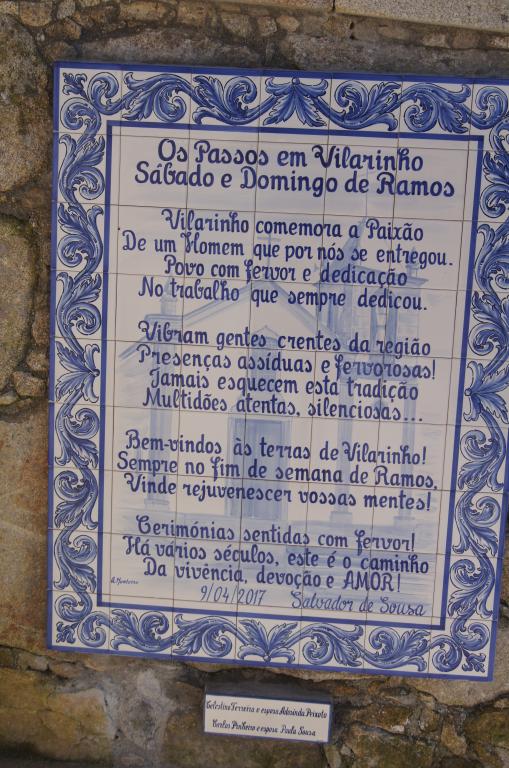 Os Passos em Vilarinho
Sábado e Domingo de Ramos
Vilarinho comemora a Paixão
De um Homem que por nós se entregou.
Povo com fervor e dedicação
No trabalho que sempre dedicou.
Vibram gentes crentes da região
Presenças assíduas e fervorosas!
Jamais esquecem esta tradição
Multidões atentas, silenciosas...
Bem-vindos às terras de Vilarinho!
Sempre no fim de semana de Ramos,
Vinde rejuvenescer vossas mentes!
Cerimónias sentidas com fervor!
Há vários séculos, este é o caminho
Da vivência, devoção e AMOR!
9/04/2017 Salvador de Sousa
Celestino Ferreira e esposa Adosinda Peixoto
Carlos Pinheiro e esposa Paula Sousa